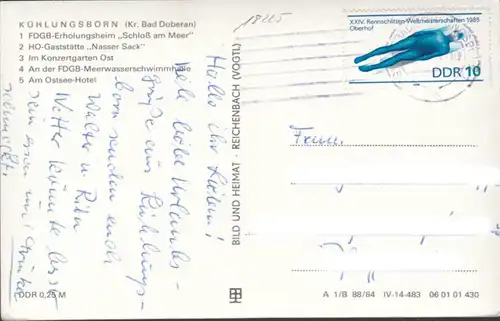 KÜHLUNGSBORN (Kr. Bad Doberan)
1 FDGB-Erholungsheim „Schloß am Meer"
2 HO-Gaststätte „Nasser Sack"
3 Im Konzertgarten Ost
4 An der FDGB-Meerwasserschwimmhalle
5 Am Ostsee-Hotel
18225
XXIV. Rennschlitten-Weltmeisterschaften 1985
Oberhof
DDR 10
Hallo ihr Lieben!
Viele liebe Urlaubs-
grüße aus Kühlungs-
born senden euch
Walter u. Rita
Wetter könnte besser
sein, essen und trinken
schmeckt.
BILD UND HEIMAT · REICHENBACH (VOGTL)
Fam.
DDR 0,25 M
A 1/B 88/84 IV-14-483 06 01 01 430